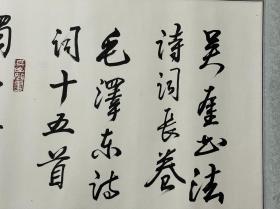 吴奎书法
诗词长卷
毛泽东诗
词十五首